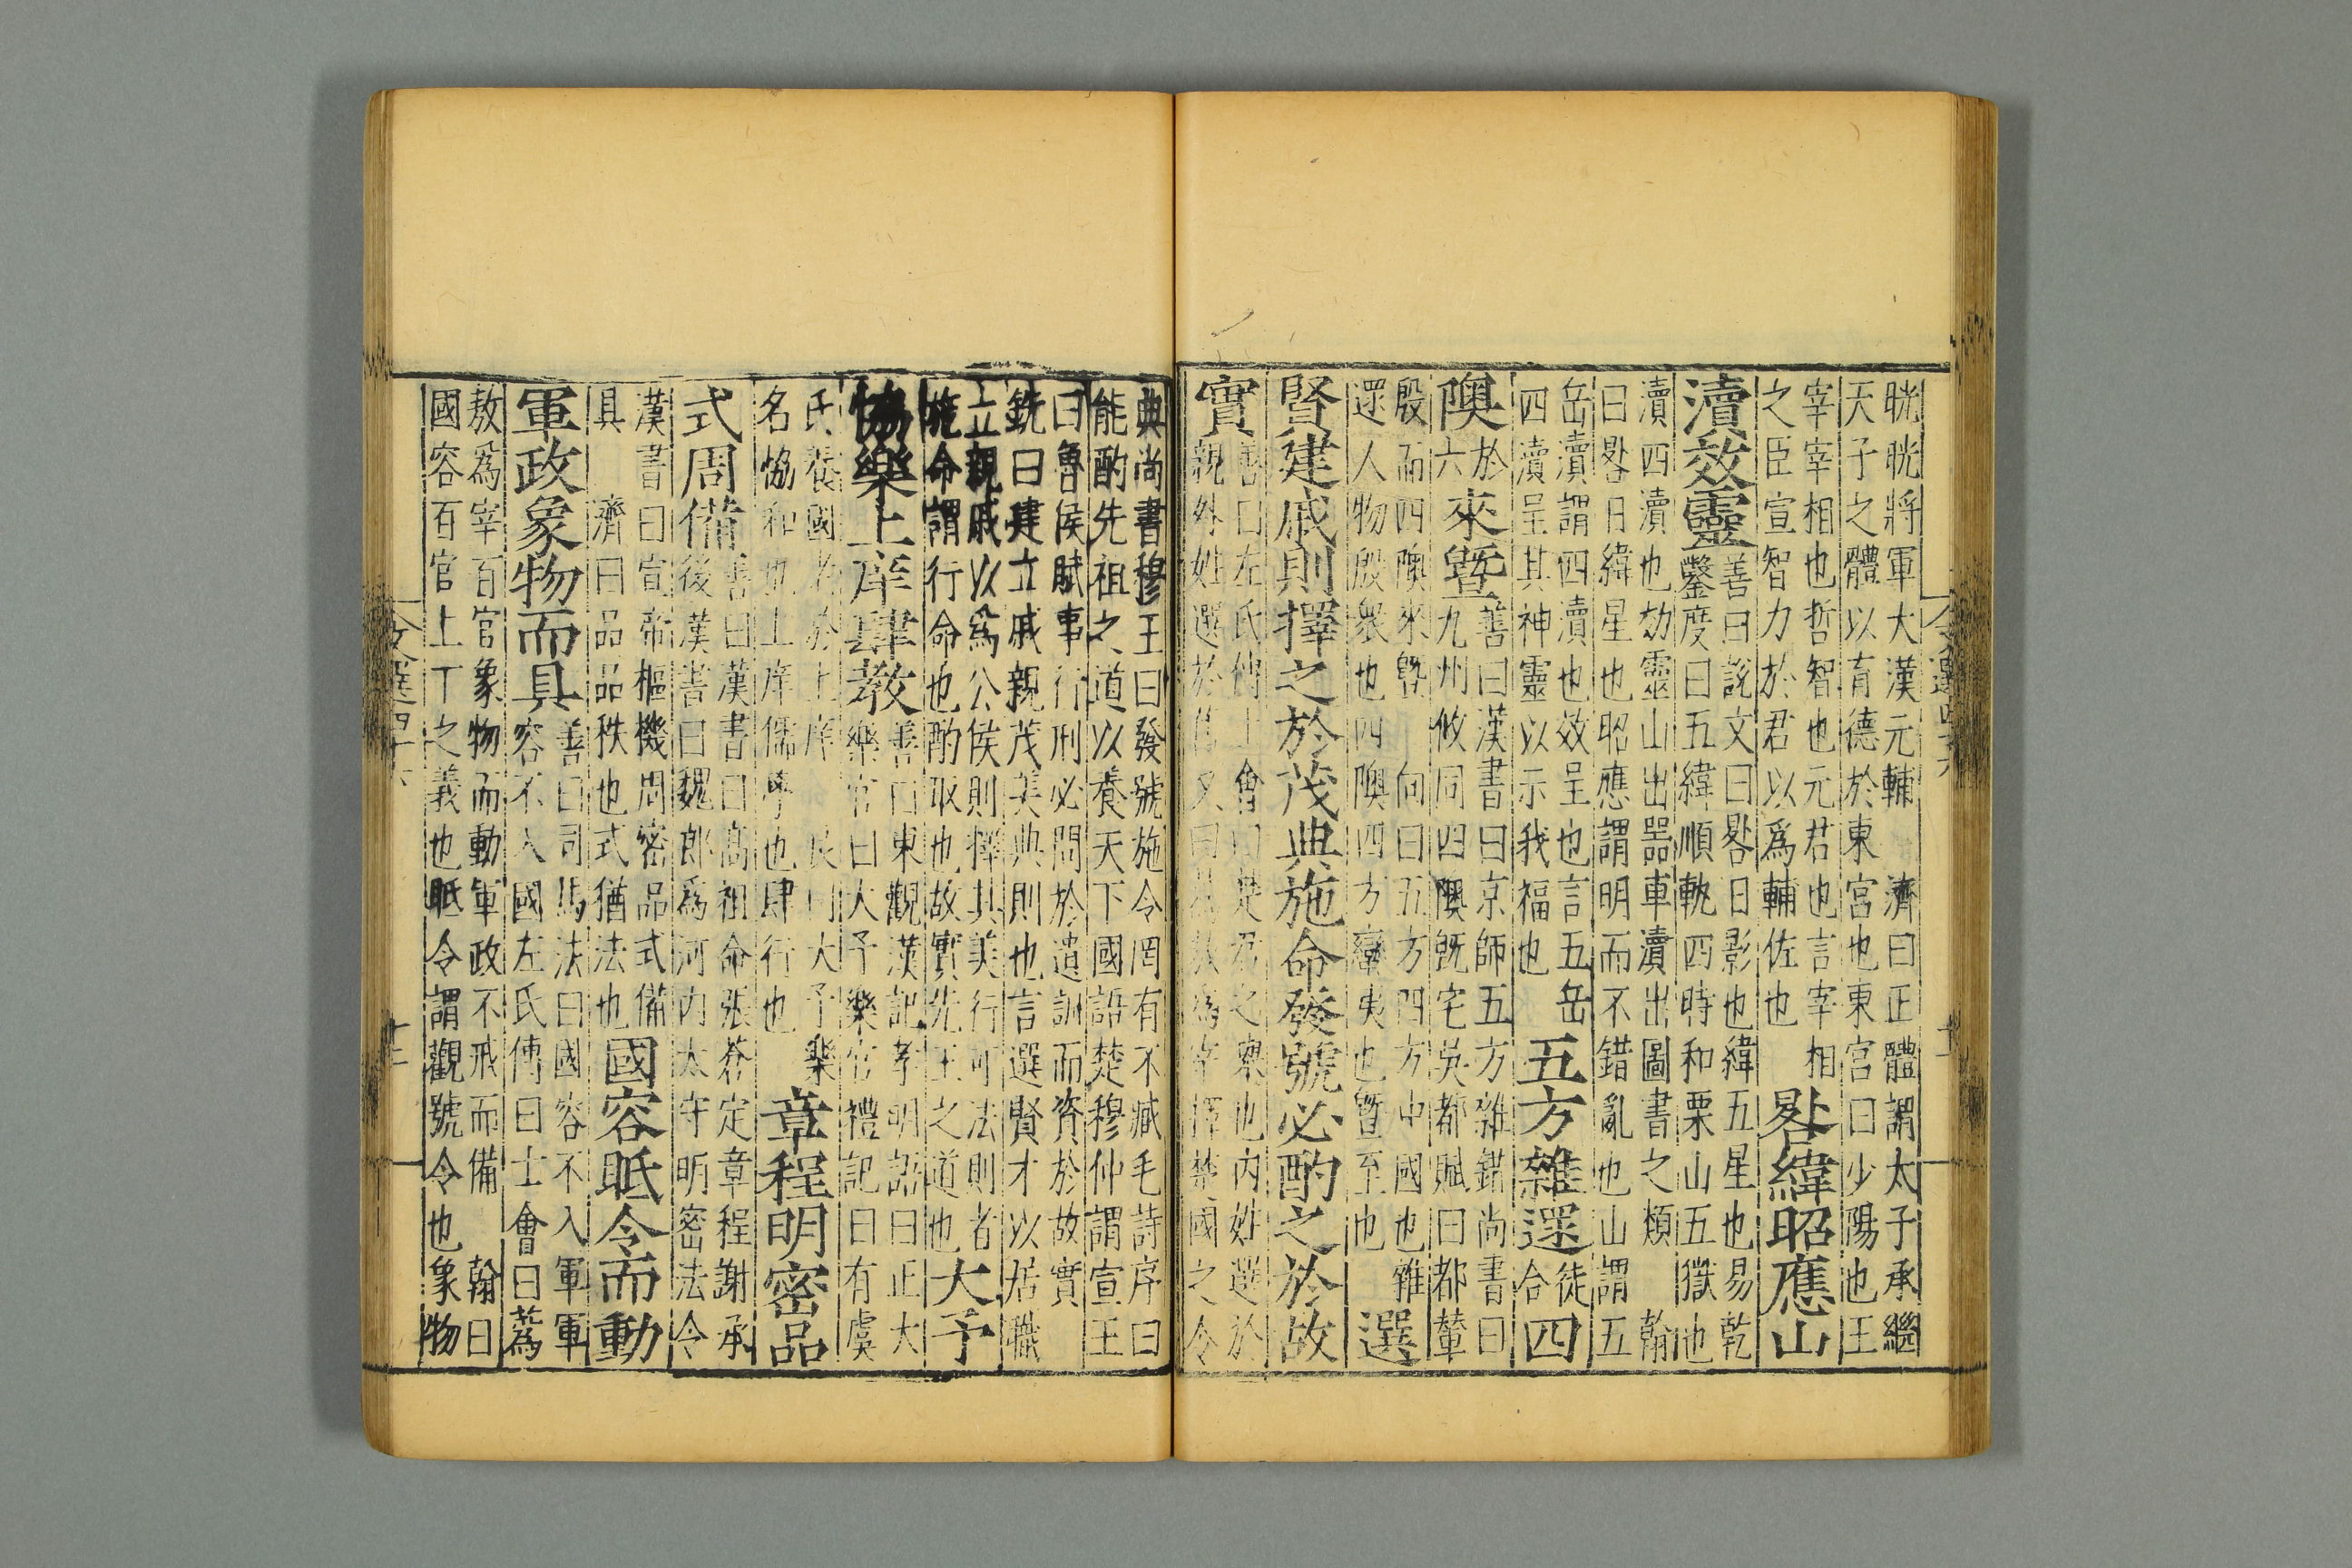 文選四十六
晄晄將軍大漢元輔 濟曰正體謂太子承繼
天子之體以育德於東宮也東宮曰少陽也王
宰宰相也哲智也元君也言宰相
之臣宣智力於君以爲輔佐也
晷緯昭應山
瀆效靈
善曰說文曰晷日影也緯五星也易乾
鑿度曰五緯順軌四時和栗山五嶽也
瀆四瀆也効靈山出器車瀆出圖書之類 翰
曰晷日緯星也昭應謂明而不錯亂也山謂五
岳瀆謂四瀆也效呈也言五岳
四瀆呈其神靈以示我福也
五方雜遝
徒
合
四
隩
於
六
來曁
善曰漢書曰京師五方雜錯尚書曰
九州攸同四隩旣宅吳都賦曰都輦
殷而四隩來曁 向曰五方四方中國也雜
遝人物殷衆也四隩四方蠻夷也曁至也
選
賢建戚則擇之於茂典施命發號必酌之於故
實
善曰左氏傳士會曰楚君之舉也內姓選於
親外姓選於舊又曰蒍敖爲宰擇楚國之令
典尚書穆王曰發號施令罔有不臧毛詩序曰
能酌先祖之道以養天下國語楚穆仲謂宣王
曰魯侯賦事行刑必問於遺訓而資於故實
銑曰建立戚親茂美典則也言選賢才以居職
立親戚以爲公侯則擇其美行可法則者
施命謂行命也酌取也故實先王之道也
大予
協樂上庠肆教
善曰東觀漢記孝明詔曰正大
樂官曰大予樂官禮記曰有虞
氏養國老於上庠 良曰大予樂
名恊和也上庠儒學也肆行也
章程明密品
式周備
善曰漢書曰高祖命張蒼定章程謝承
後漢書曰魏郎爲河內太守明密法令
漢書曰宣帝樞機周密品式備
具 濟曰品品秩也式猶法也
國容眡令而動
軍政象物而具
善曰司馬法曰國容不入軍軍
容不入國左氏傳曰士會曰蒍
敖爲宰百官象物而動軍政不戒而備 翰曰
國容百官上下之義也眡令謂觀號令也象物
文選四十六
十二